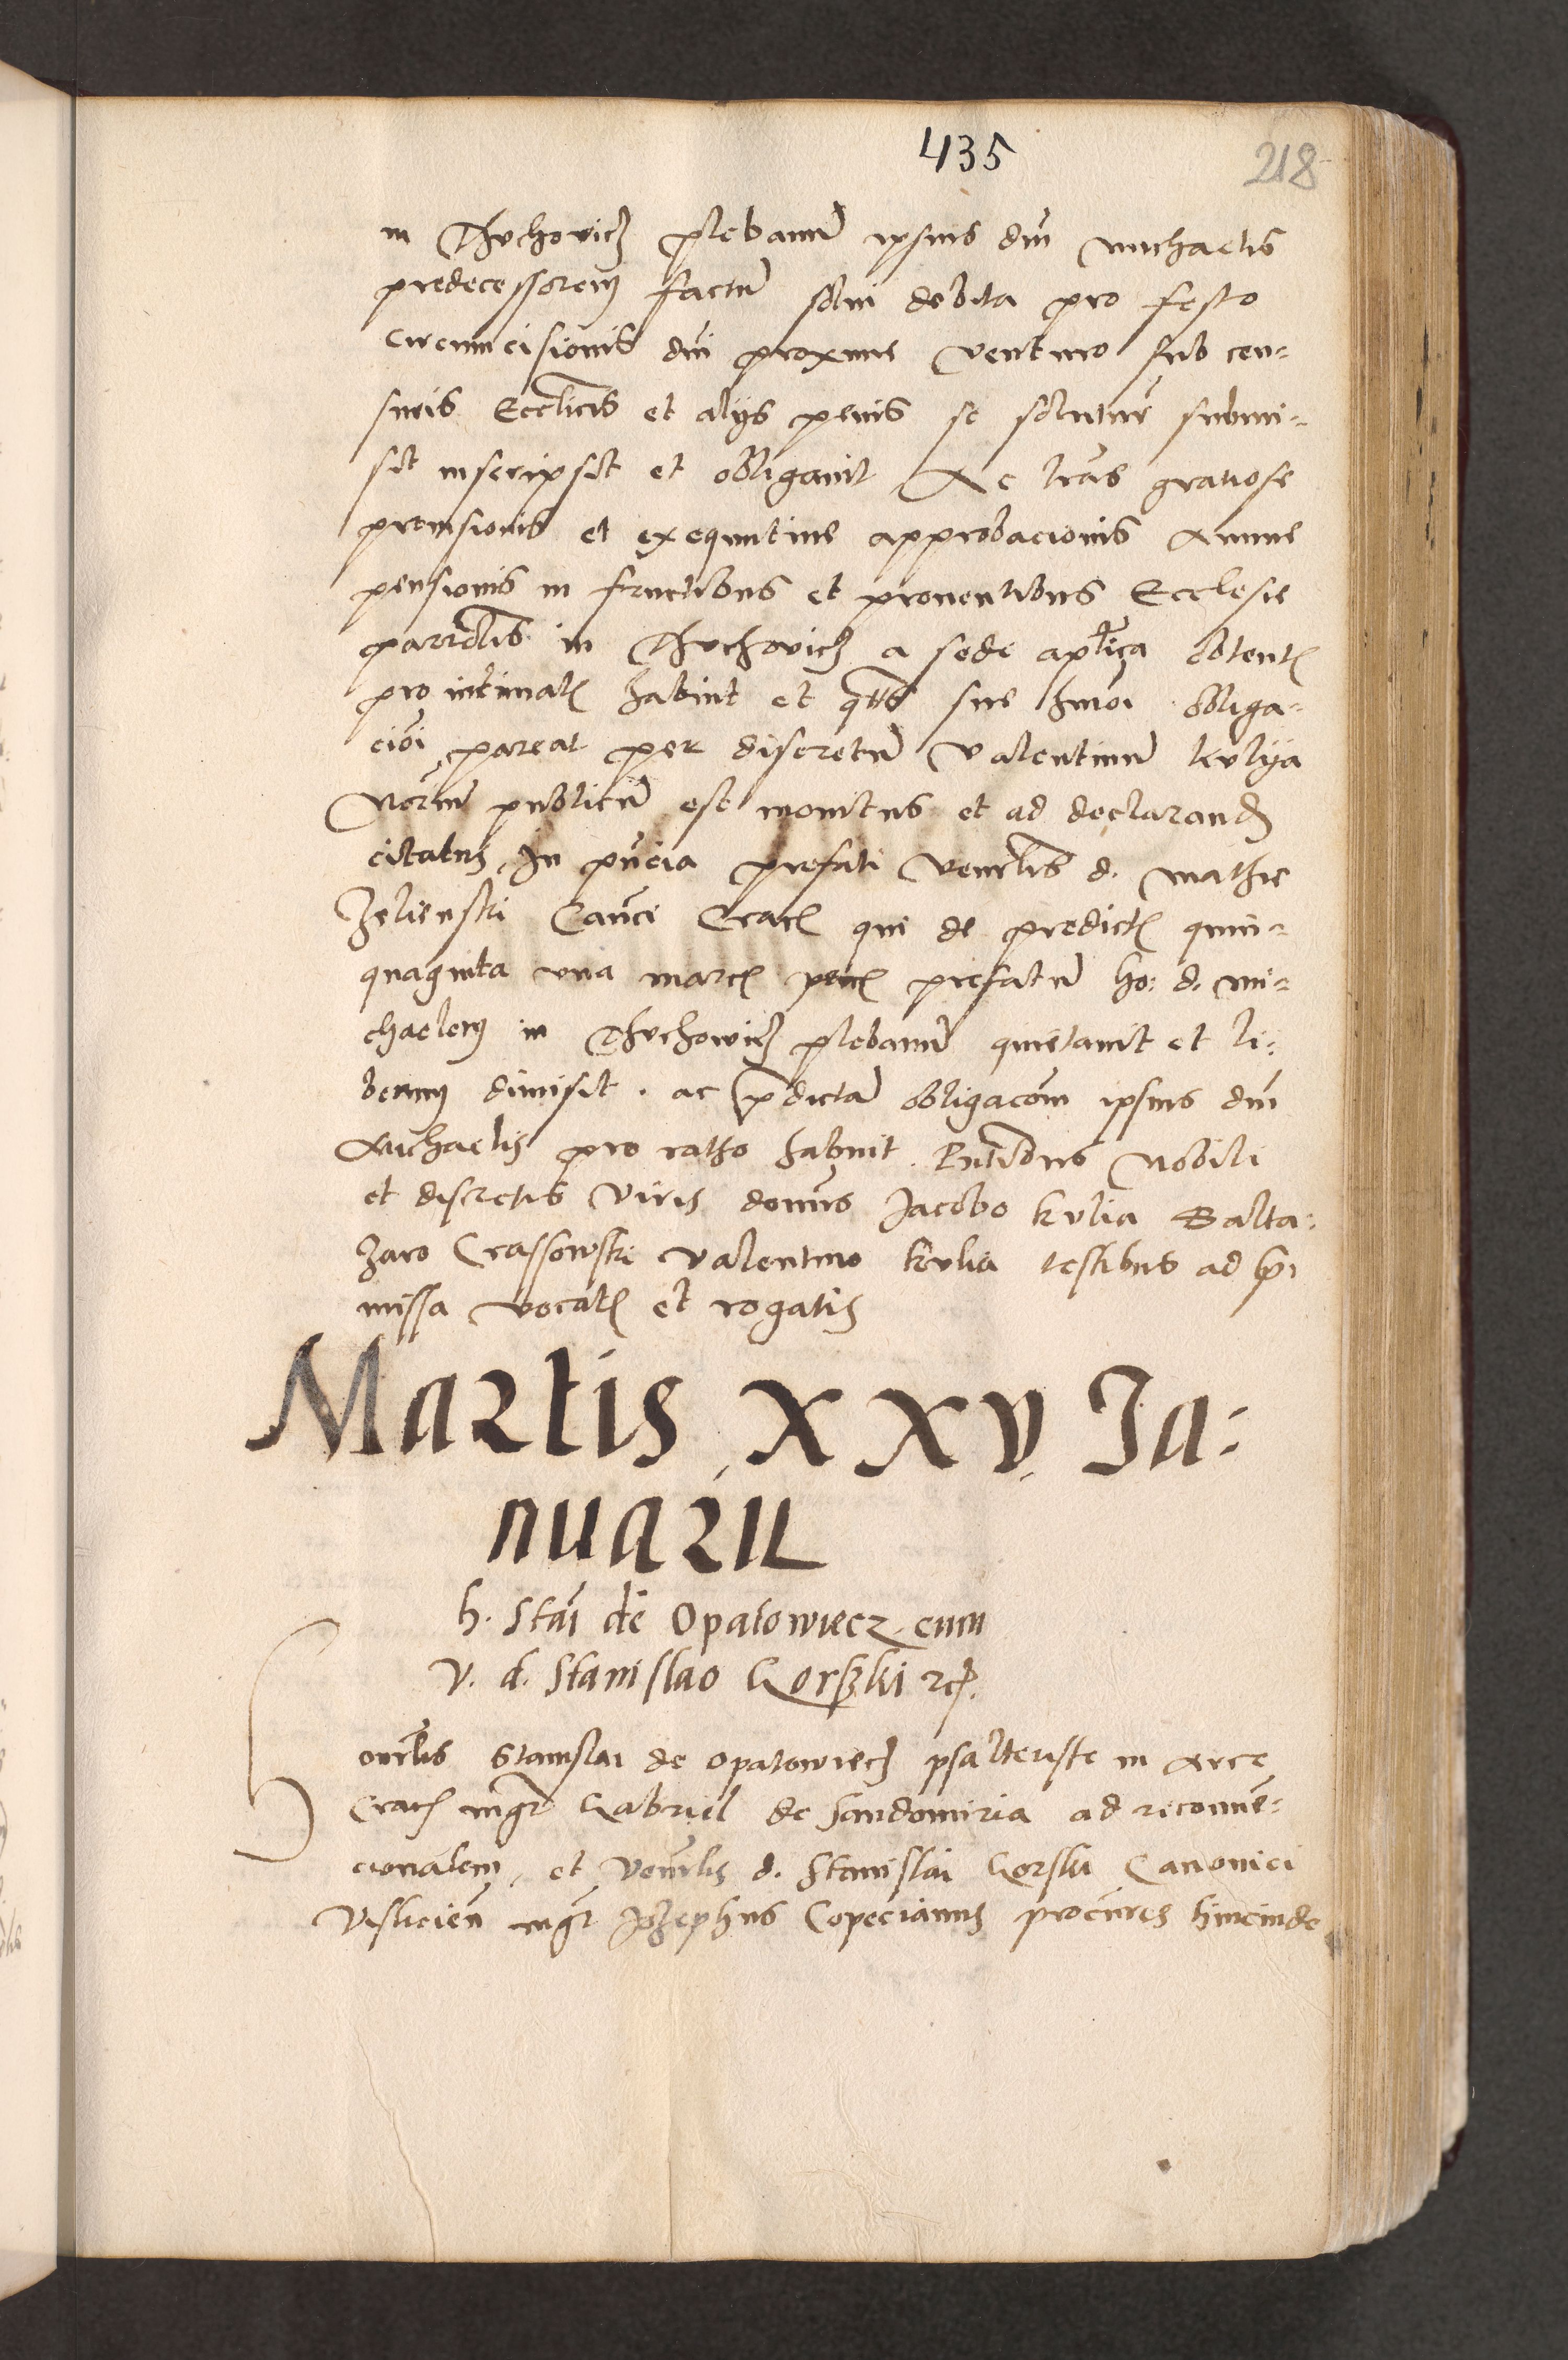 435
218
in Thvchovicz plebanū ipsius dni michaelis
predecessorem factū solui debita pro festo
circumcisionis dni proxime venturo sub cen-
suris Ecclicis et alijs penis se soluturū submi-
sit inscripsit et obligauit Ac lrās gratiose
prouisionis et exequutiue approbacionis Annue
pensionis in fructibus et prouentibus Ecclesie
parrochlis in Thvchovicz a sede aplica obtent
pro intimat habuit et qtus sue hmoi obliga-
cioi pareat per discretū valentinū kvlija
Notriū publicū est monitus et ad declarand
citatus, In pncia prefati venerlis d. mathie
Zelienski Canci Crac qui de predict quin-
quaginta vna marc penes prefatū ho: d. mi-
chaelem in Thvchowicz plebanū quietauit et li-
berum dimisit. ac pdictā obligacōm ipsius dni
Michaelis pro ratho habuit. Pntibus Nobili
et discretis viris domis Jacobo kvlia Balta-
zaro Crassowski valentino kvlia testibus ad pre
missa vocat et rogatis
Martis XXV Ja:
nuarii
h. Stai de Opatowiecz cum
v. d. Stanislao Gorski rcp.
Honorlis Stanislai de Opatowiecz psalteriste in Arce
Crac mgr Gabriel de Sandomiria ad reconue-
cionalem, et Venerlis d. Stanislai Gorski Canonici
Visliciēn mgr Jozephus Copecianus procures hincinde